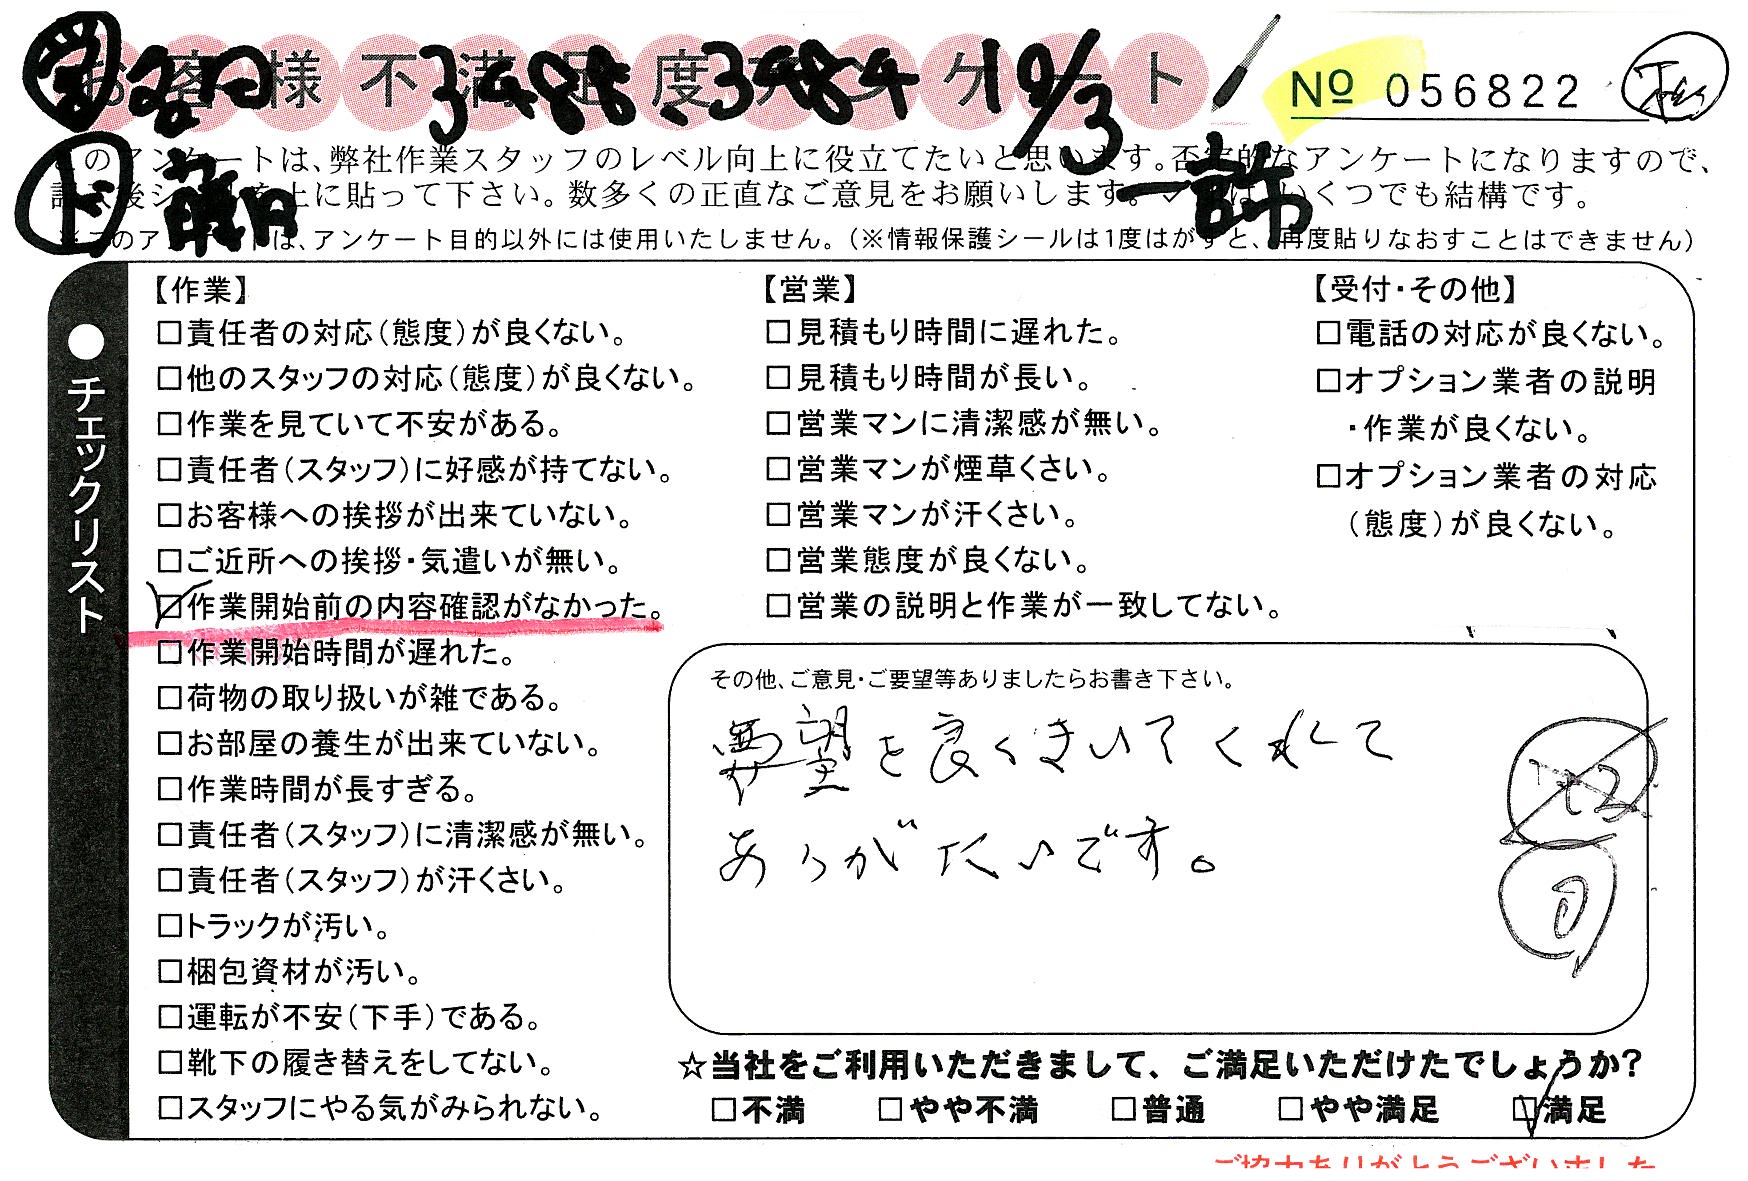 お客様不満足度アンケート
営 3488、3484 10/3
No 056822
ド 一許
このアンケートは、弊社作業スタッフのレベル向上に役立てたいと思います。否定的なアンケートになりますので、
上に貼って下さい。数多くの正直なご意見をお願いします。✓はいくつでも結構です。
※このアンケートは、アンケート目的以外には使用いたしません。（※情報保護シールは1度はがすと、再度貼りなおすことはできません）
●チェックリスト
【作業】
□責任者の対応（態度）が良くない。
□他のスタッフの対応（態度）が良くない。
□作業を見ていて不安がある。
□責任者（スタッフ）に好感が持てない。
□お客様への挨拶が出来ていない。
□ご近所への挨拶・気遣いが無い。
☑作業開始前の内容確認がなかった。
□作業開始時間が遅れた。
□荷物の取り扱いが雑である。
□お部屋の養生が出来ていない。
□作業時間が長すぎる。
□責任者（スタッフ）に清潔感が無い。
□責任者（スタッフ）が汗くさい。
□トラックが汚い。
□梱包資材が汚い。
□運転が不安（下手）である。
□靴下の履き替えをしてない。
□スタッフにやる気がみられない。
【営業】
□見積もり時間に遅れた。
□見積もり時間が長い。
□営業マンに清潔感が無い。
□営業マンが煙草くさい。
□営業マンが汗くさい。
□営業態度が良くない。
□営業の説明と作業が一致してない。
【受付・その他】
□電話の対応が良くない。
□オプション業者の説明
・作業が良くない。
□オプション業者の対応
（態度）が良くない。
その他、ご意見・ご要望等ありましたらお書き下さい。
要望を良くきいてくれて
ありがたいです。
☆当社をご利用いただきまして、ご満足いただけたでしょうか？
□不満 □やや不満 □普通 □やや満足 ☑満足
ご協力ありがとうございました